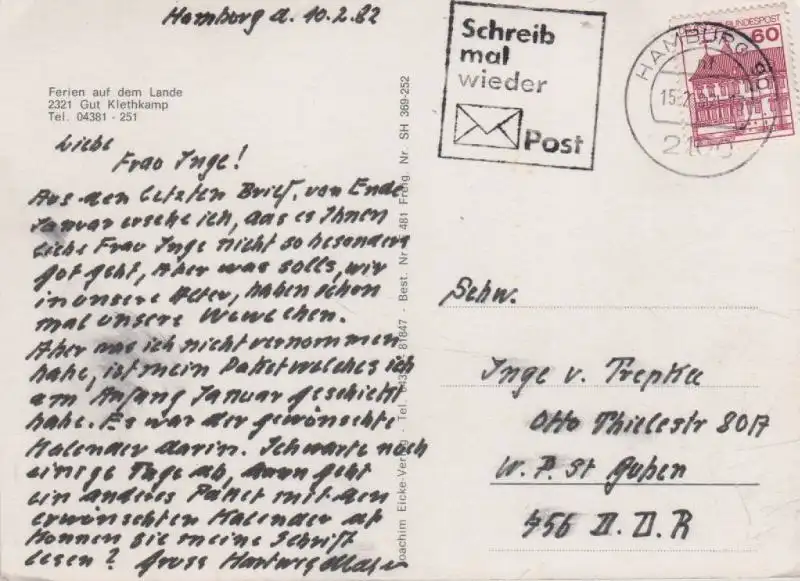 Hamburg d. 10.2.82
Ferien auf dem Lande
2321 Gut Klethkamp
Tel. 04381 - 251
Liebe
Frau Inge!
Aus den letzten Brief, von Ende
Januar ersehe ich, das es Ihnen
liebe Frau Inge nicht so besonders
got geht, Aber was solls, wir
in unsere Alter, haben schon
mal unsere Wewechen.
Aber was ich nicht vernommen
habe, ist mein Paket welches ich
am Anfang Januar geschickt
habe. Es war der gewünschte
Kalender darin. Ich warte noch
einige Tage ab, dann geht
ein anderes Paket mit den
erwünschten Kalender ab
Können Sie meine Schrift
lesen? Gruss Hartwig
Joachim Eicke-Verlag - Tel. 81847 - Best. Nr. 481 Freig. Nr. SH 369-252
Schreib
mal
wieder
Post
HAMBURG
15.2.
BUNDESPOST
60
Schw.
Inge v. Trepka
Otto Thielestr 80A
W. P. St Guben
756 D. D. R